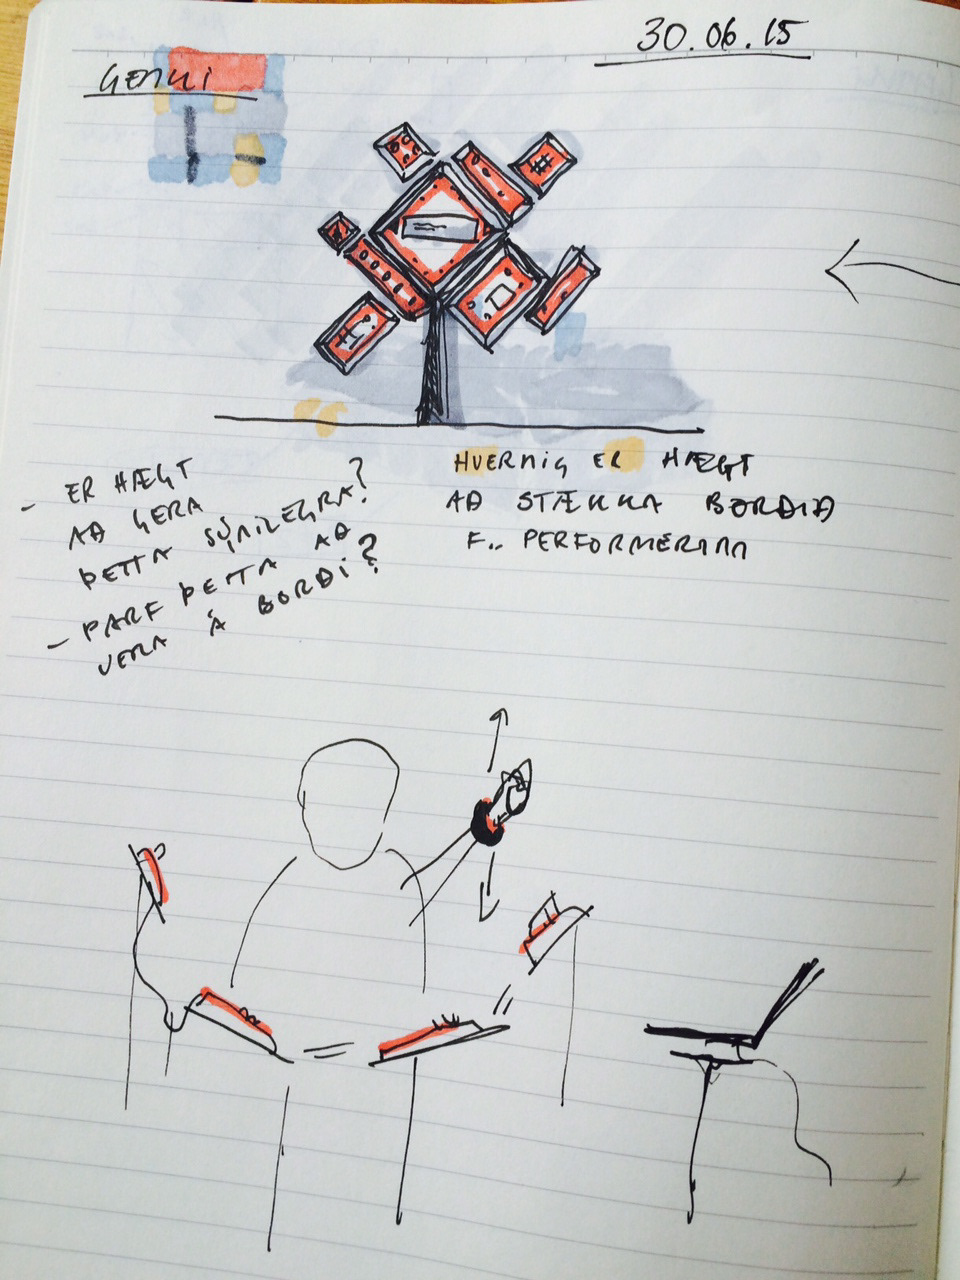 30.06.15
GENKI
- ER HÆGT
AÐ GERA
ÞETTA SÝNILEGRA?
- ÞARF ÞETTA AÐ
VERA Á BORÐI?
HVERNIG ER HÆGT
AÐ STÆKKA BORÐIÐ
F.. PERFORMERINN